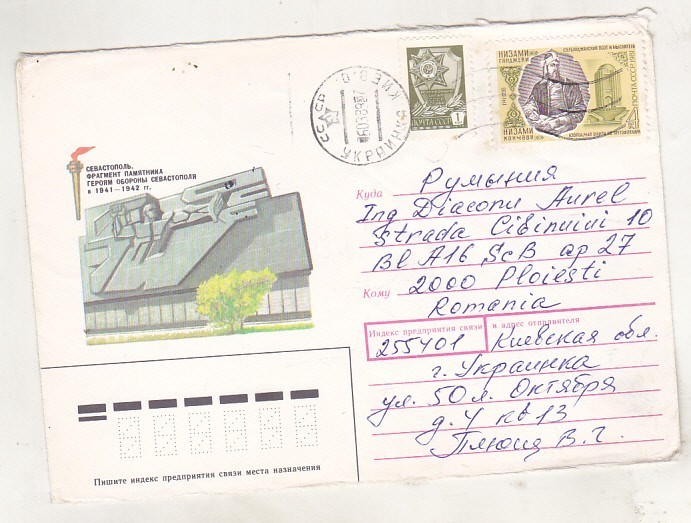 СЕВАСТОПОЛЬ.
ФРАГМЕНТ ПАМЯТНИКА
ГЕРОЯМ ОБОРОНЫ СЕВАСТОПОЛЯ
в 1941—1942 гг.
СССР УКРАИНКА КИЕВ.О.
ПОЧТА СССР
1
НИЗАМИ
ГЯНДЖЕВИ
НИЗАМИ
АЗЕРБАЙДЖАНСКИЙ ПОЭТ И МЫСЛИТЕЛЬ
ПОЧТА СССР 1981
4
Куда Румыния
Ing Diaconu Aurel
Strada Cibinului 10
Bl A16 ScB ap 27
Кому 2000 Ploiesti
Romania
Индекс предприятия связи и адрес отправителя
255401 Киевская обл.
г. Украинка
ул. 50 л. Октября
д. 4 кв 13
Плющ В. Г.
Пишите индекс предприятия связи места назначения